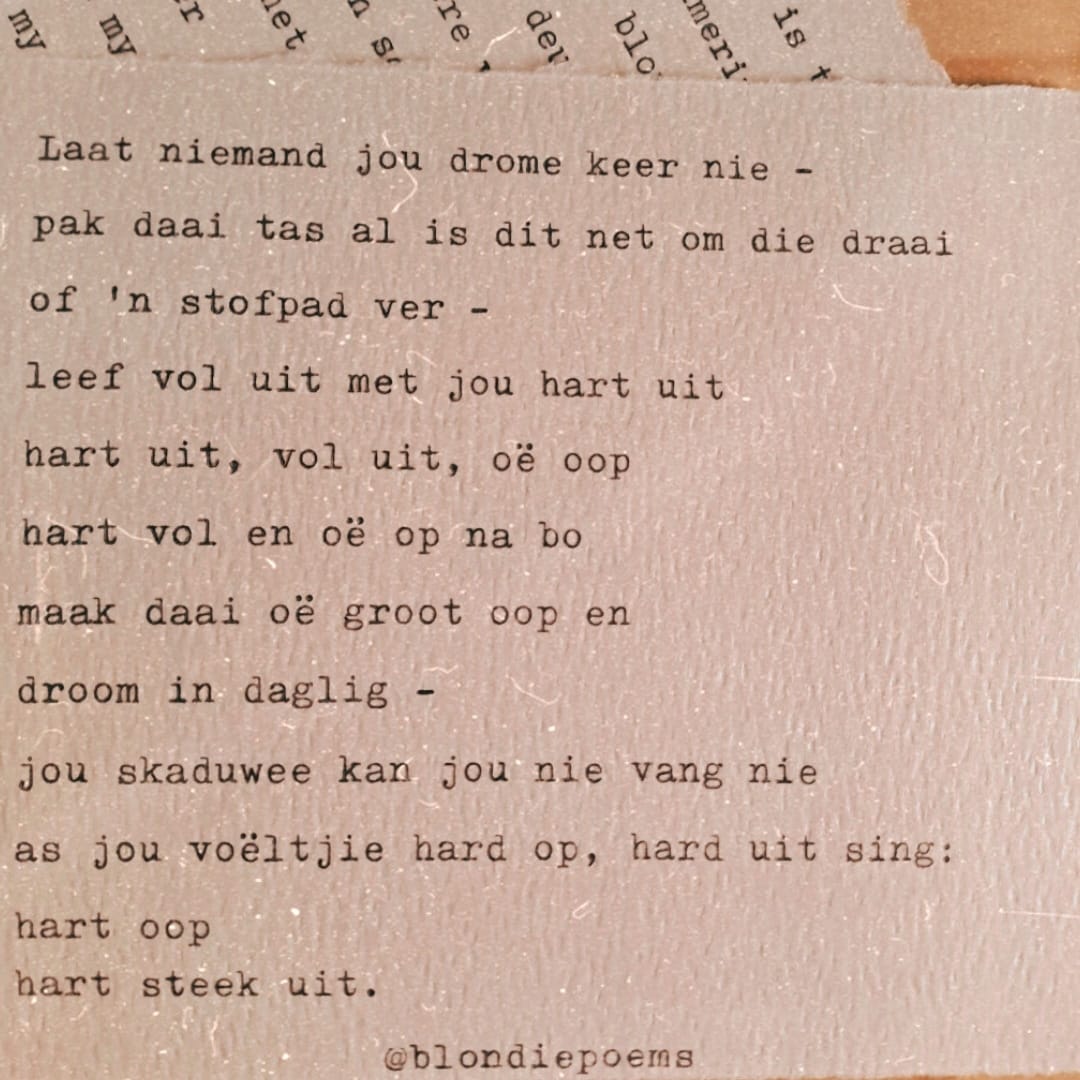 my my
is
Laat niemand jou drome keer nie -
pak daai tas al is dit net om die draai
of 'n stofpad ver -
leef vol uit met jou hart uit
hart uit, vol uit, oë oop
hart vol en oë op na bo
maak daai oë groot oop en
droom in daglig -
jou skaduwee kan jou nie vang nie
as jou voëltjie hard op, hard uit sing:
hart oop
hart steek uit.
@blondiepoems